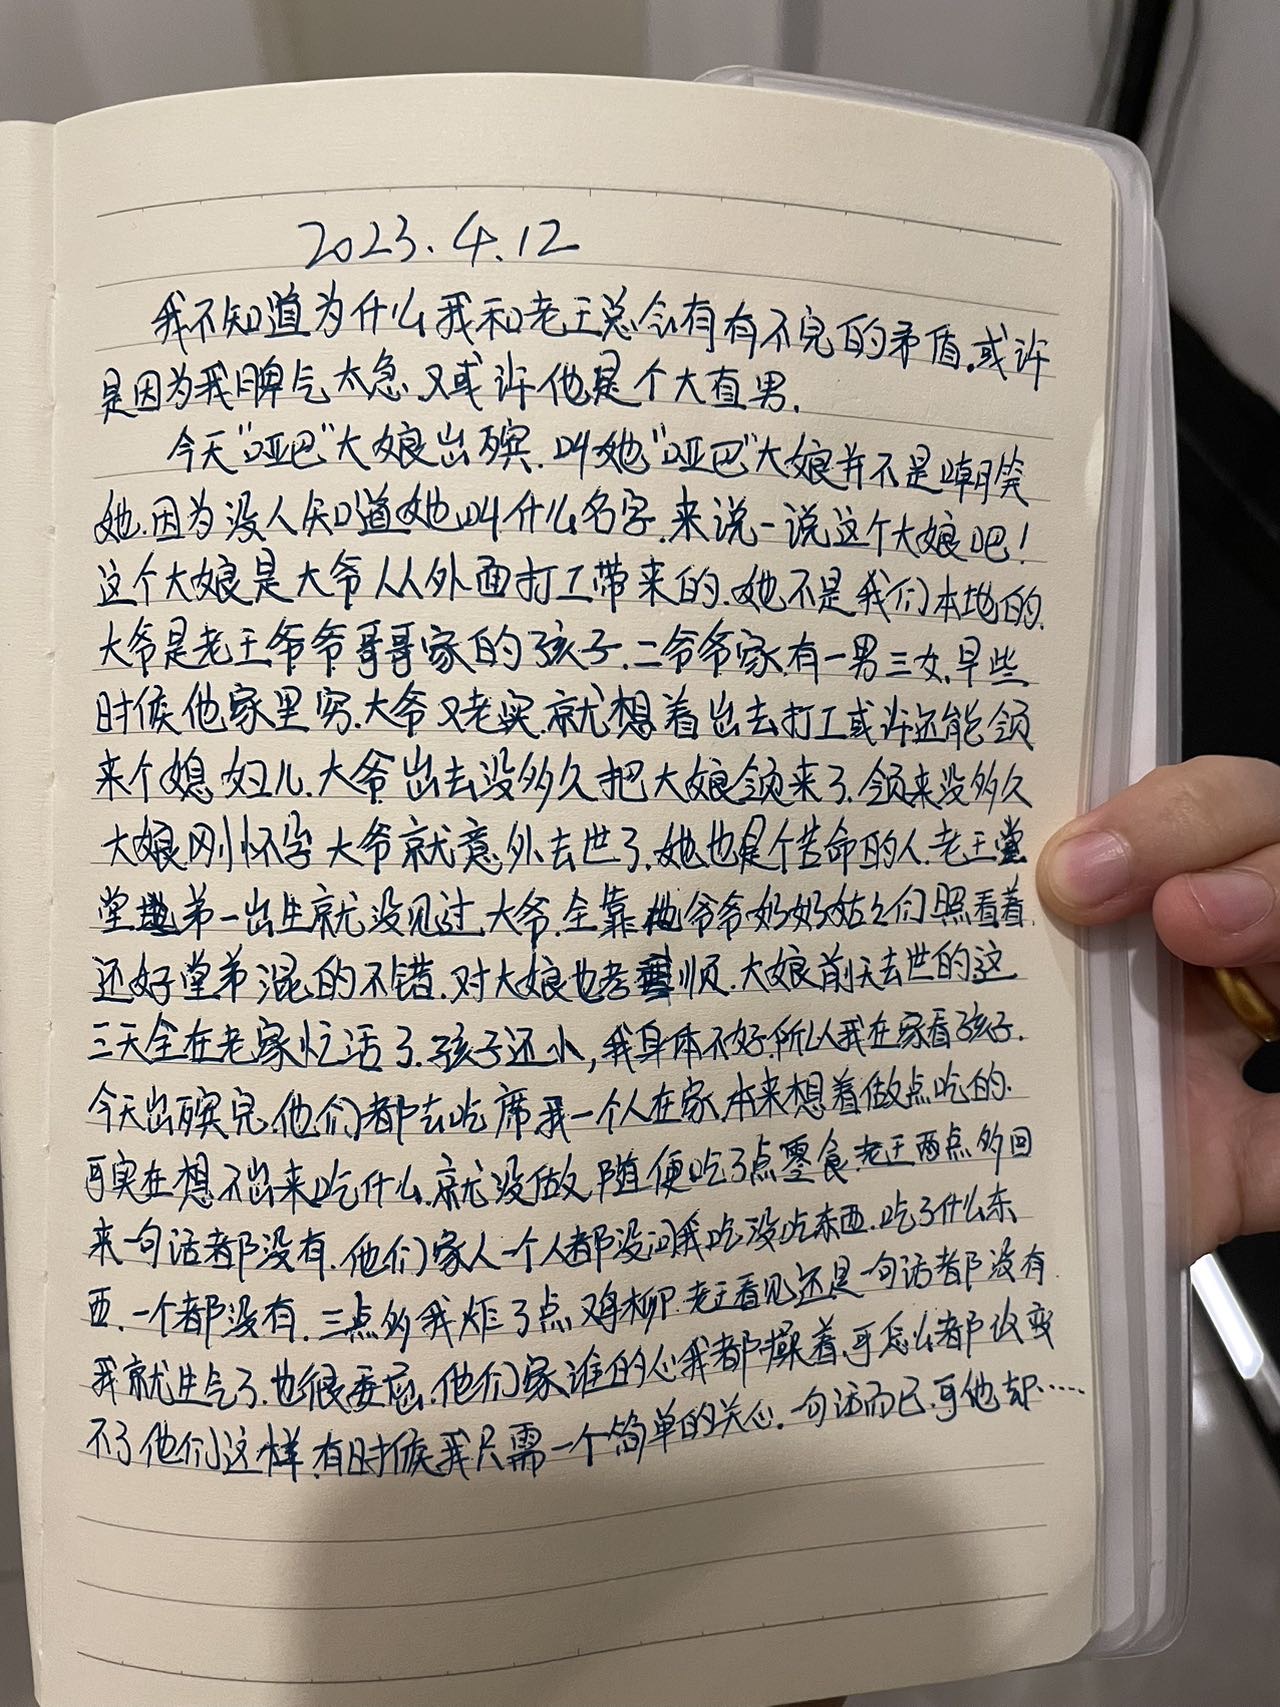 2023.4.12
我不知道为什么我和老王总会有有不完的矛盾.或许
是因为我脾气太急.又或许他是个大直男.
今天"哑巴"大娘出殡.叫她"哑巴"大娘并不是嘲笑
她.因为没人知道她叫什么名字.来说一说这个大娘吧!
这个大娘是大爷从外面打工带来的.她不是我们本地的.
大爷是老王爷爷哥哥家的孩子.二爷爷家.有一男三女.早些
时候他家里穷.大爷又老实.就想着出去打工或许还能领
来个媳妇儿.大爷出去没多久把大娘领来了.领来没多久
大娘刚怀孕大爷就意外去世了.她也是个苦命的人.老王
堂弟一出生就没见过大爷.全靠他爷爷奶奶姑姑们照看着.
还好堂弟混的不错.对大娘也孝顺.大娘前天去世的这
三天全在老家忙活了.孩子还小,我身体不好.所以我在家看孩子.
今天出殡完.他们都去吃席我一个人在家.本来想着做点吃的.
可实在想不出来吃什么.就没做.随便吃了点零食.老王两点多回
来一句话都没有.他们家人一个人都没问我吃没吃东西.吃了什么东
西.一个都没有.三点多我炸了点鸡柳.老王看见还是一句话都没有.
我就生气了.也很委屈.他们家谁的心我都操着.可怎么都改变
不了他们这样.有时候我只需一个简单的关心.一句话而已.可他却……